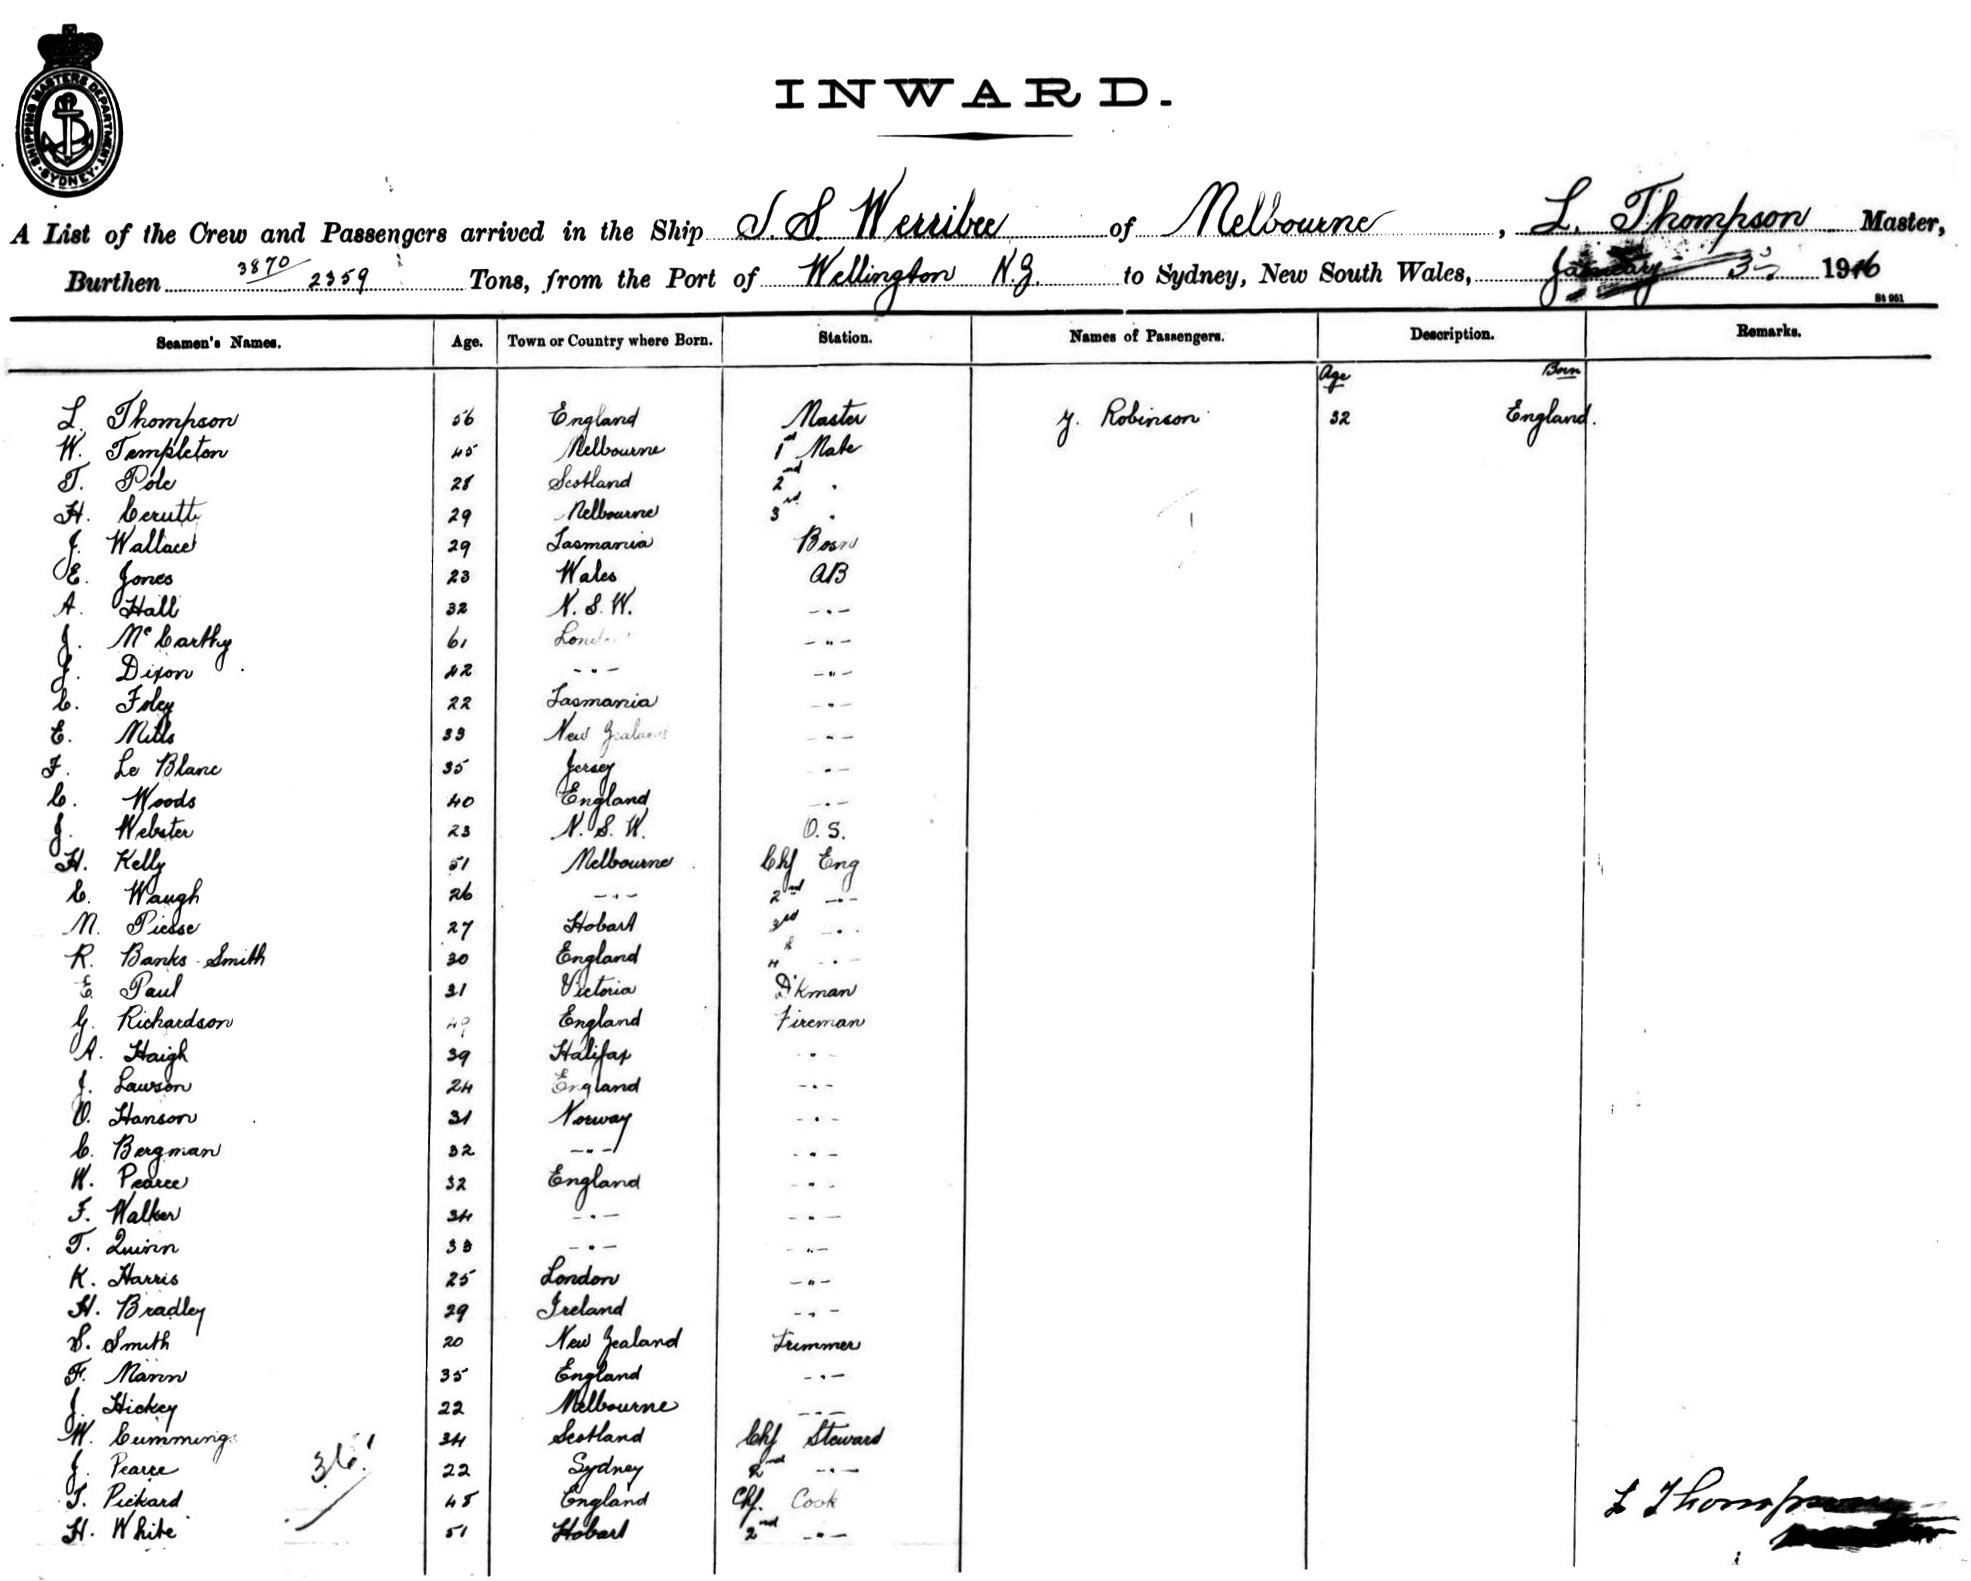 SHIPPING MASTERS DEPARTMENT · SYDNEY ·
INWARD.
A List of the Crew and Passengers arrived in the Ship S. S. Werribee of Melbourne, L. Thompson Master,
Burthen 3870 / 2359 Tons, from the Port of Wellington N.Z. to Sydney, New South Wales, January 3rd 1916
St 961
Seamen's Names. Age. Town or Country where Born. Station. Names of Passengers. Description. Remarks.
Age Born
L. Thompson 56 England Master J. Robinson 32 England.
W. Templeton 45 Melbourne 1st Mate
T. Pole 28 Scotland 2nd "
H. Cerutty 29 Melbourne 3rd "
J. Wallace 29 Tasmania Bosn
E. Jones 23 Wales AB
A. Hall 32 N. S. W. - " -
J. McCarthy 61 London - " -
J. Dixon 42 - " - - " -
C. Foley 22 Tasmania - " -
E. Mills 33 New Zealand - " -
F. Le Blanc 35 Jersey - " -
C. Woods 40 England - " -
J. Webster 23 N. S. W. O. S.
H. Kelly 51 Melbourne Chf Eng
C. Waugh 26 - " - 2nd - " -
N. Piesse 27 Hobart 3rd - " -
R. Banks-Smith 30 England 4 - " -
E. Paul 31 Victoria D'kman
G. Richardson England Fireman
A. Haigh 39 Halifax - " -
J. Lawson 24 England - " -
O. Hanson 31 Norway - " -
C. Bergman 32 - " - - " -
W. Pearce 32 England - " -
F. Walker 34 - " - - " -
T. Quinn 33 - " - - " -
K. Harris 25 London - " -
H. Bradley 29 Ireland - " -
S. Smith 20 New Zealand Trimmer
F. Mann 35 England - " -
J. Hickey 22 Melbourne - " -
W. Cummings 34 Scotland Chf Steward
J. Pearce 22 Sydney 2nd - " -
36
T. Pickard 48 England Chf. Cook
H. White 51 Hobart 2nd - " -
L Thompson